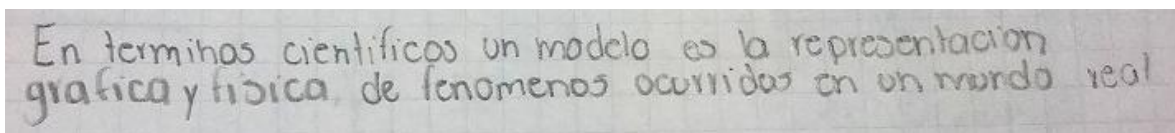 En terminos cientificos un modelo es la representacion
grafica y fisica de fenomenos ocurridos en un mundo real